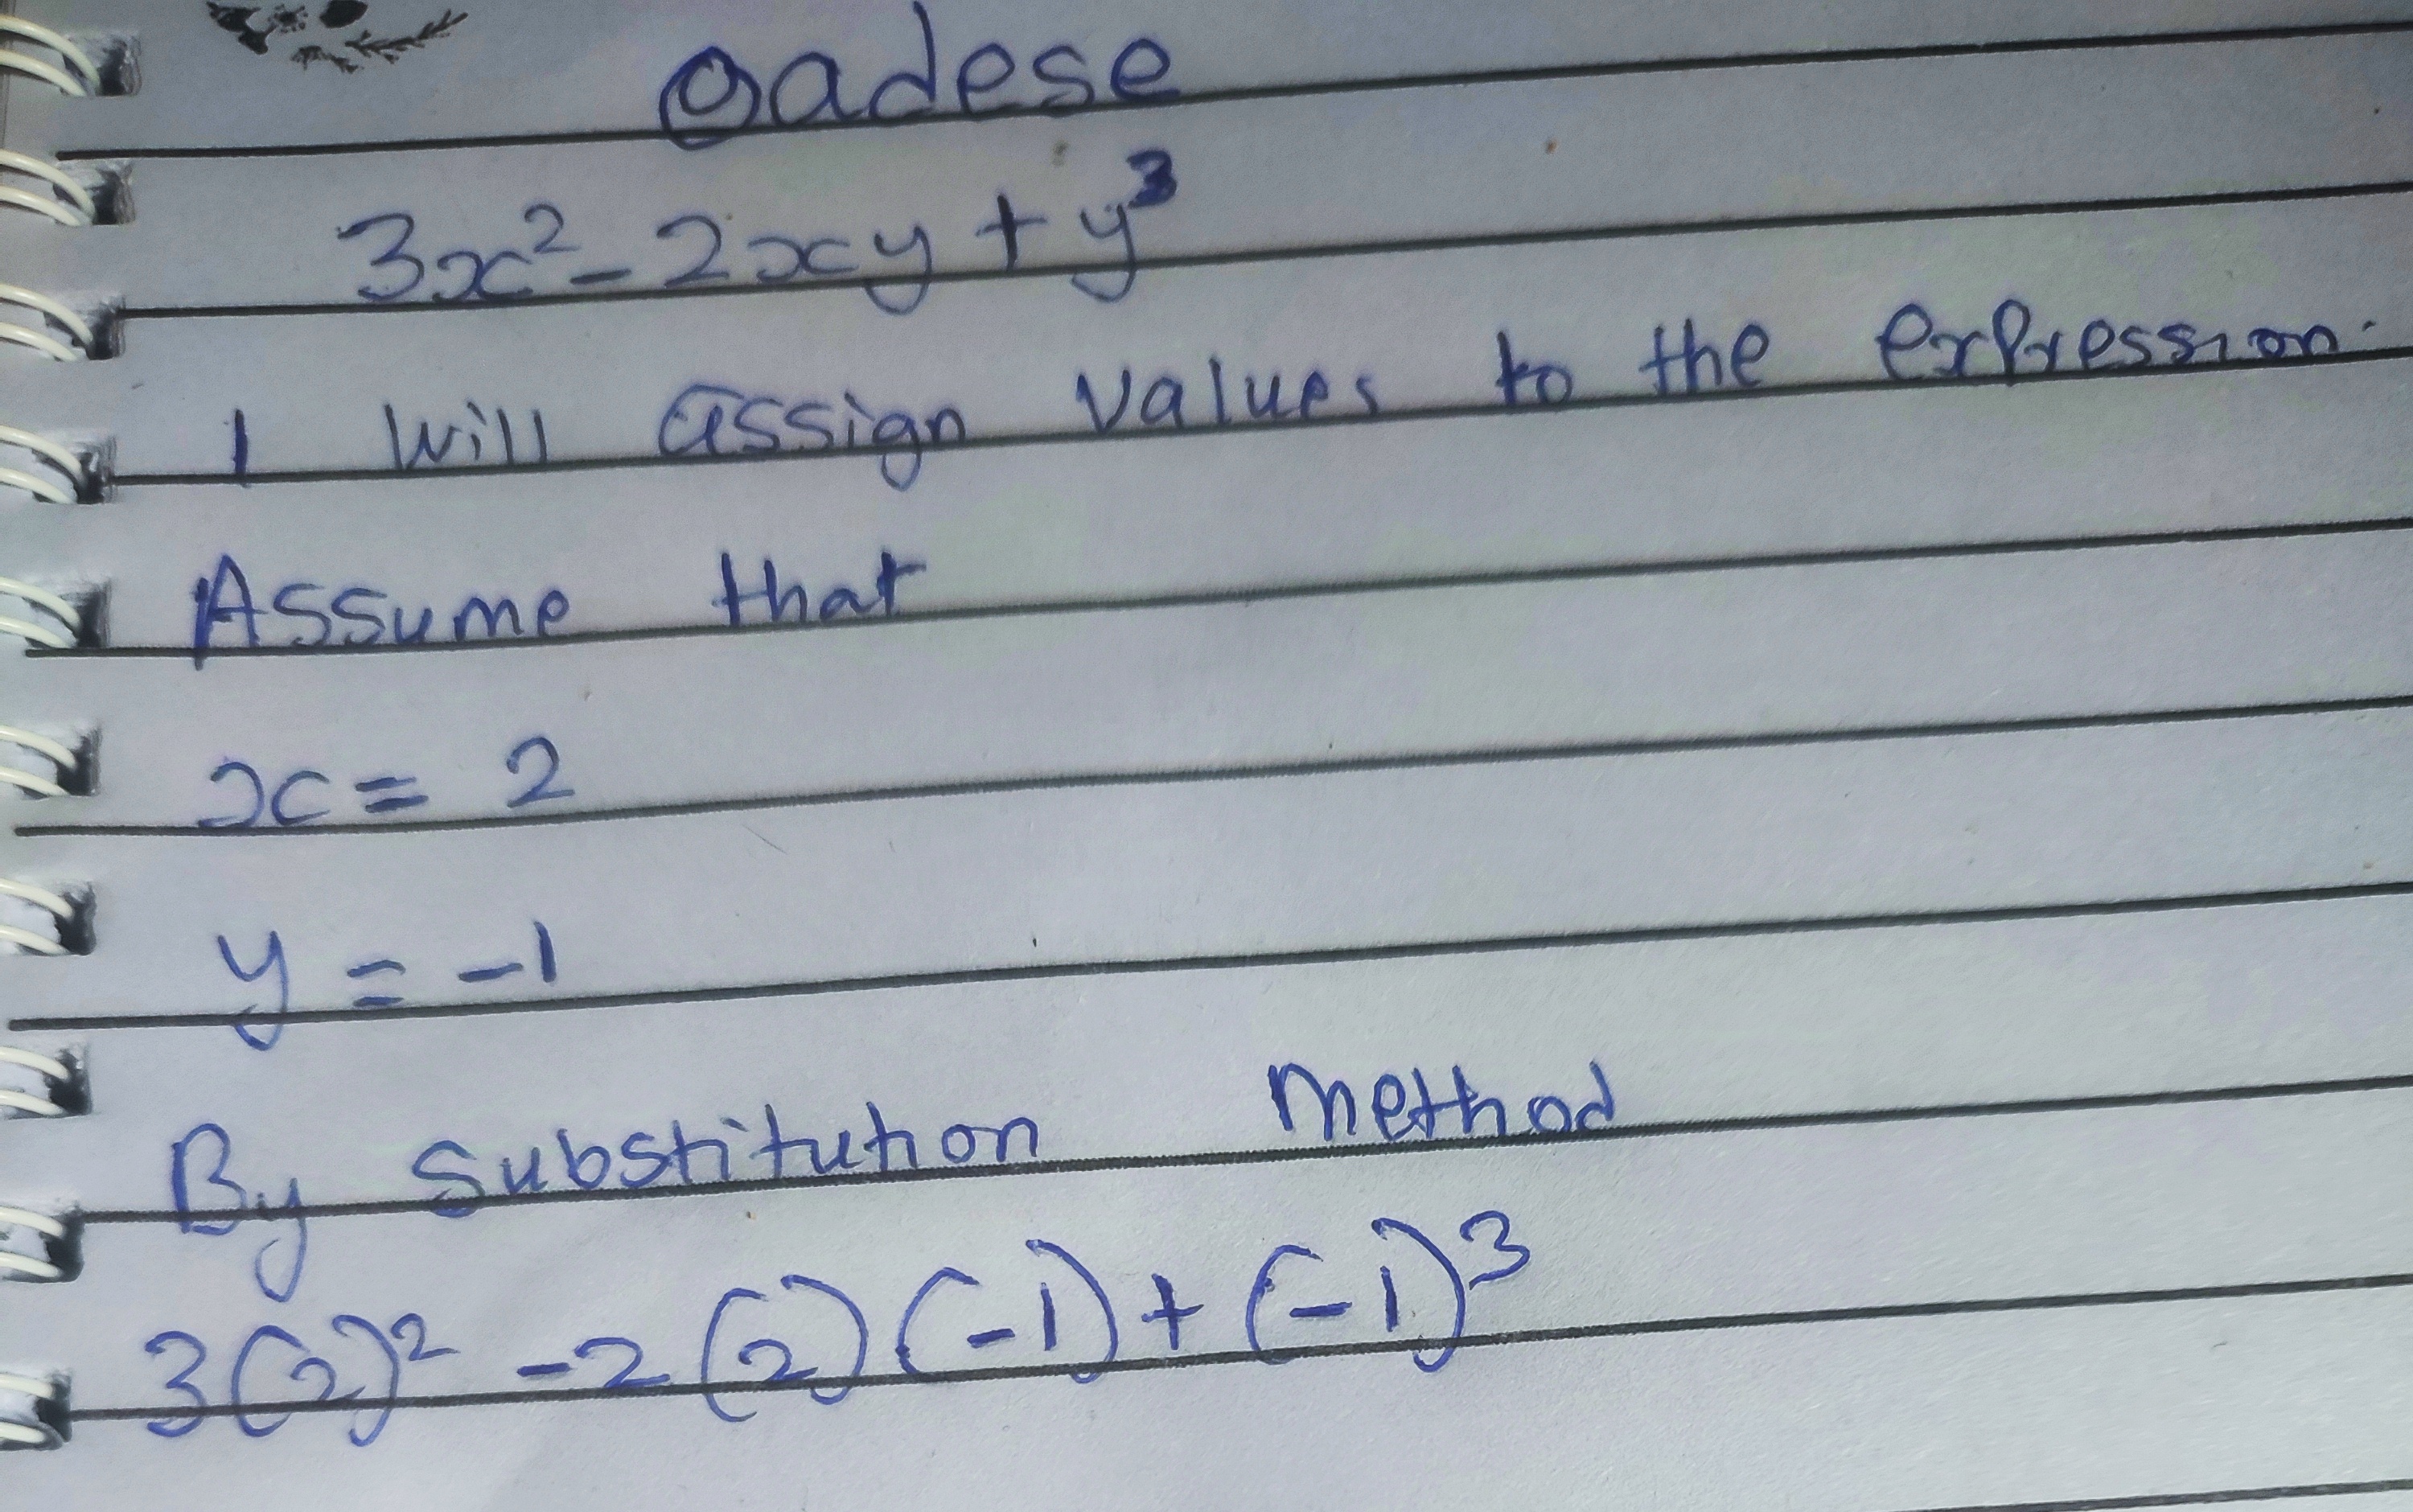 Oadese
3x² - 2xy + y³
I will assign values to the expression.
Assume that
x = 2
y = -1
By substitution method
3(2)² - 2(2)(-1) + (-1)³